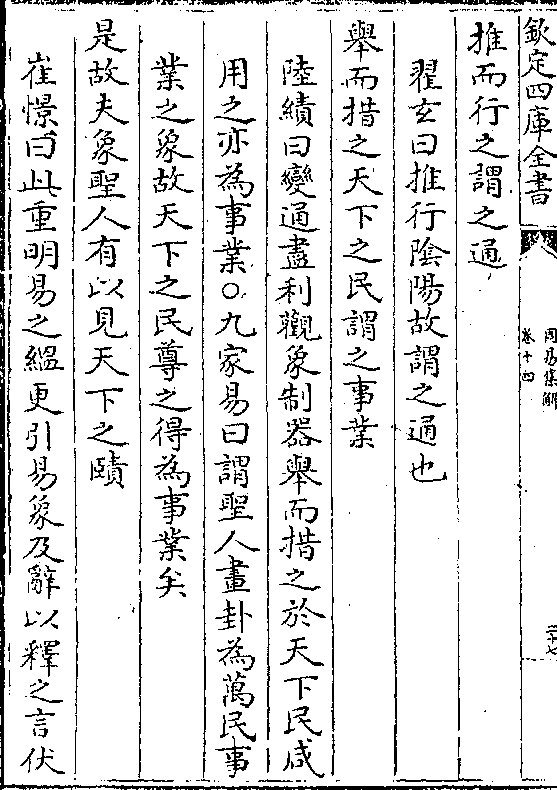 欽定四庫全書
周易集解
卷十四
二十七
推而行之謂之通
翟玄曰推行陰陽故謂之通也
舉而措之天下之民謂之事業
陸績曰變通盡利觀象制器舉而措之於天下民咸
用之亦為事業○九家易曰謂聖人畫卦為萬民事
業之象故天下之民尊之得為事業矣
是故夫象聖人有以見天下之賾
崔憬曰此重明易之緼更引易象及辭以釋之言伏